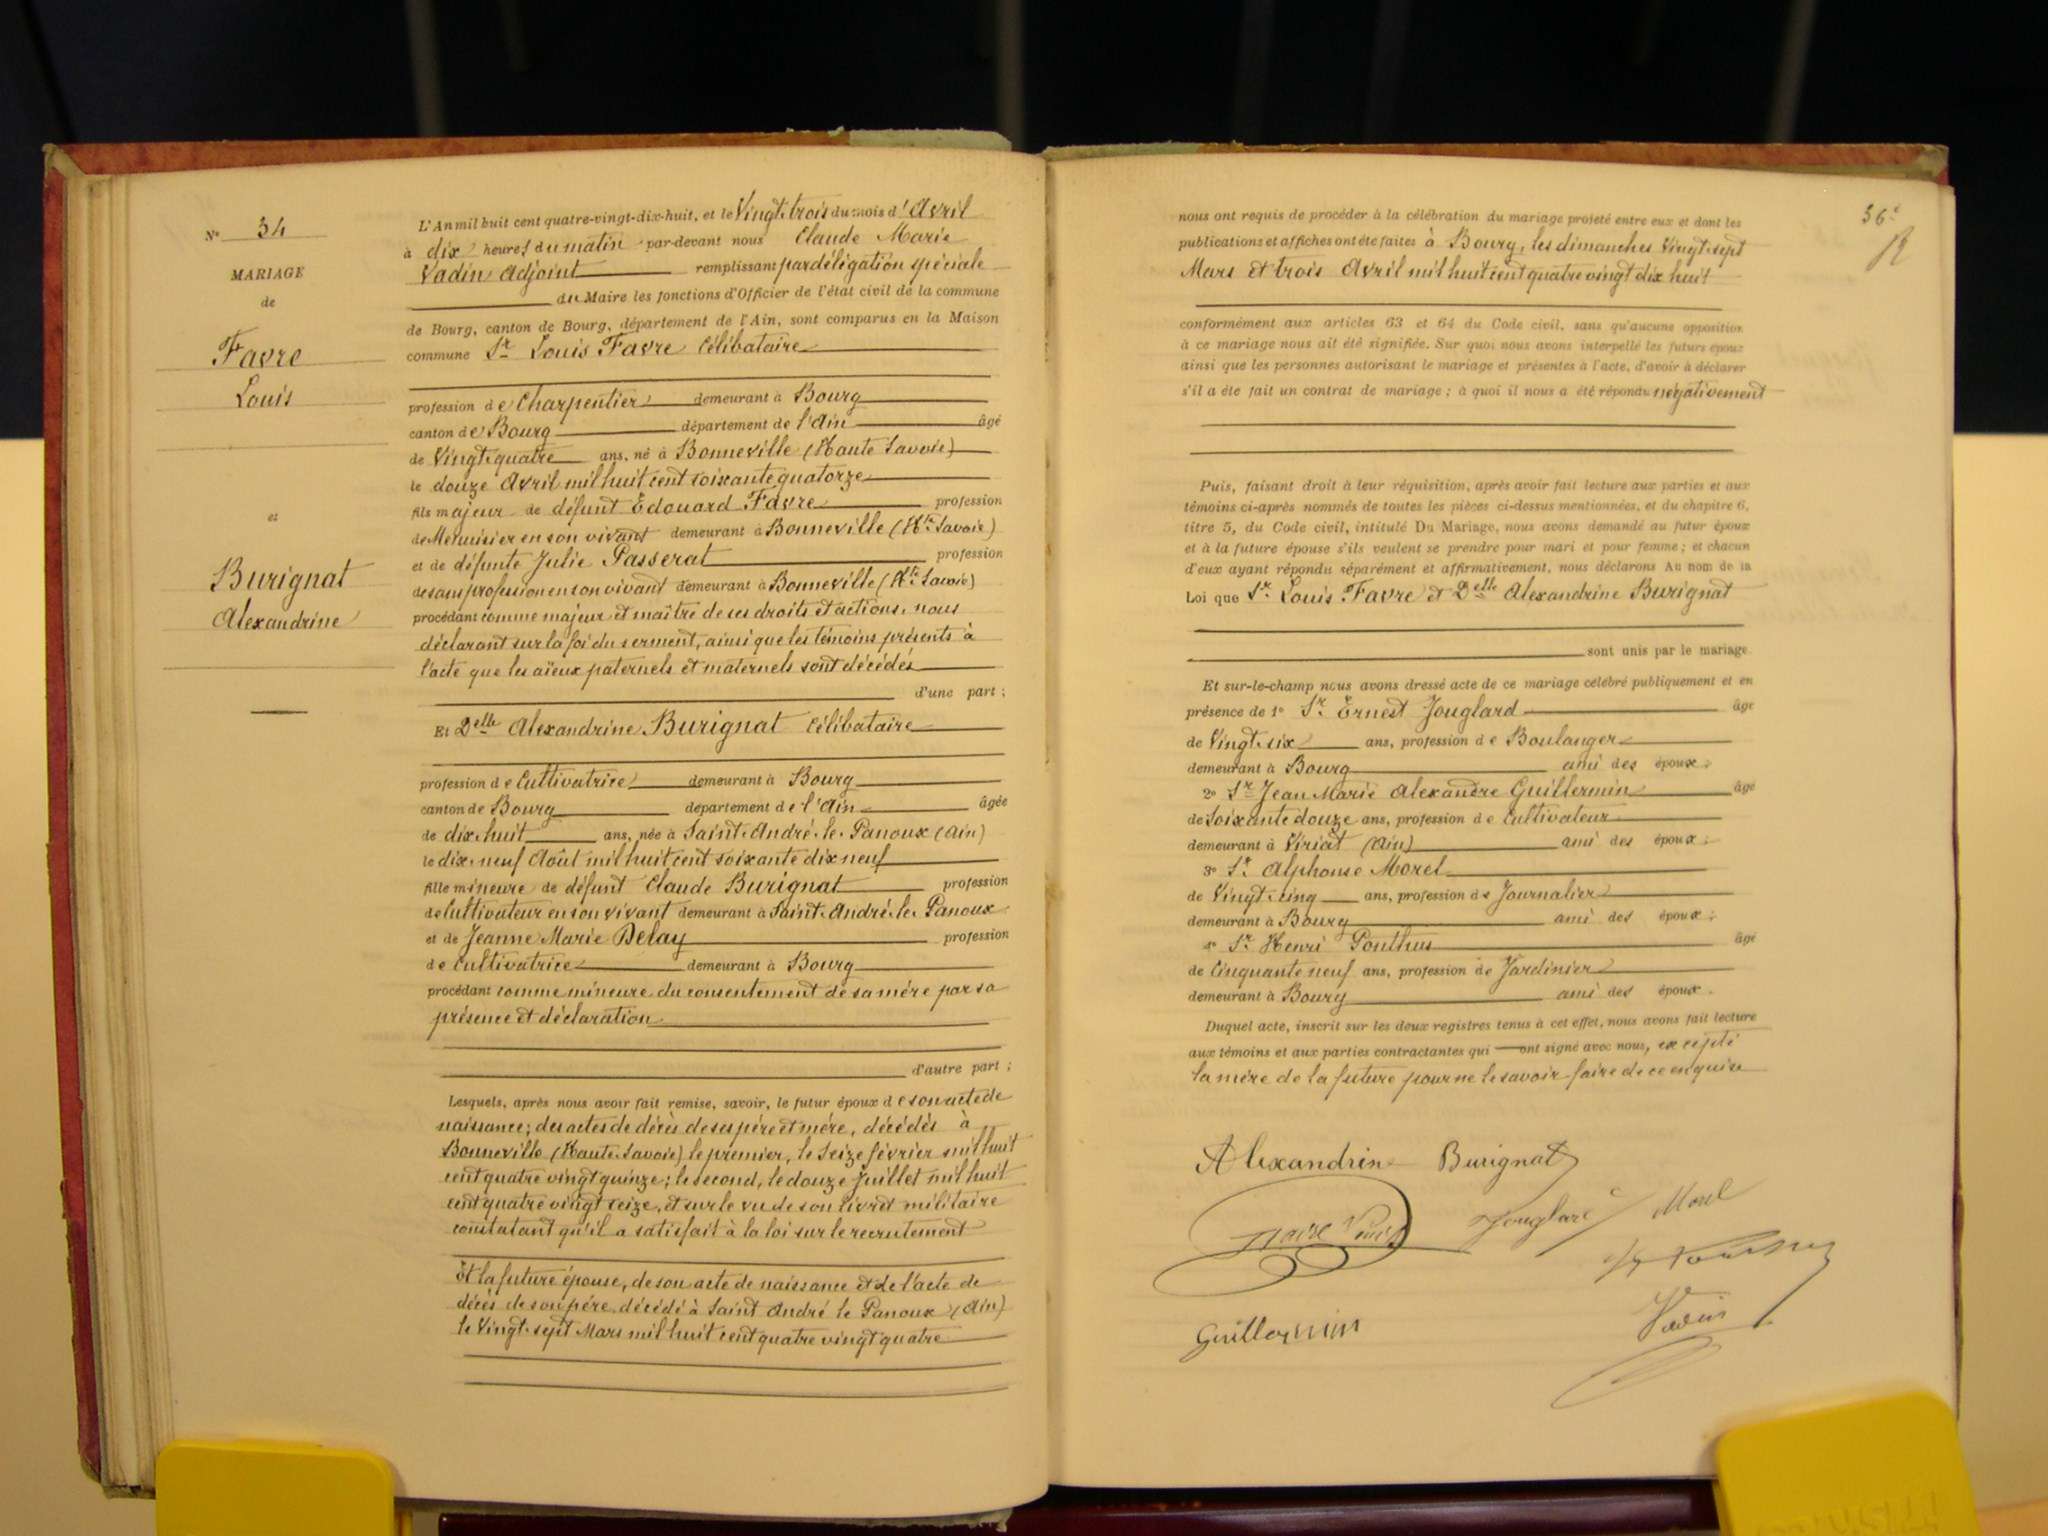 Nº 34
MARIAGE
de
Favre
Louis
et
Burignat
Alexandrine
L'An mil huit cent quatre-vingt-dix-huit, et le Vingt-trois du mois d'Avril
à dix heures du matin par-devant nous Claude Marie
Vadin Adjoint remplissant par délégation spéciale
du Maire les fonctions d'Officier de l'état civil de la commune
de Bourg, canton de Bourg, département de l'Ain, sont comparus en la Maison
commune Sr Louis Favre Célibataire
profession de Charpentier demeurant à Bourg
canton de Bourg département de l'Ain âgé
de Vingt-quatre ans, né à Bonneville (Haute Savoie)
le douze Avril mil huit cent soixante quatorze
fils majeur de défunt Edouard Favre profession
de Menuisier en son vivant demeurant à Bonneville (Hte Savoie)
et de défunte Julie Passerat profession
de sans profession en son vivant demeurant à Bonneville (Hte Savoie)
procédant comme majeur et maître de ses droits et actions, nous
déclarant sur la foi du serment, ainsi que les témoins présents à
l'acte que les aïeux paternels et maternels sont décédés
d'une part ;
Et Delle Alexandrine Burignat Célibataire
profession de Cultivatrice demeurant à Bourg
canton de Bourg département de l'Ain âgée
de dix-huit ans, née à Saint-André-le-Panoux (Ain)
le dix-neuf Août mil huit cent soixante dix neuf
fille mineure de défunt Claude Burignat profession
de Cultivateur en son vivant demeurant à Saint-André-le-Panoux
et de Jeanne Marie Delay profession
de Cultivatrice demeurant à Bourg
procédant comme mineure du consentement de sa mère par sa
présence et déclaration
d'autre part ;
Lesquels, après nous avoir fait remise, savoir, le futur époux de son acte de
naissance; des actes de décès de ses père et mère, décédés à
Bonneville (Haute-Savoie) le premier, le Seize février mil huit
cent quatre vingt quinze; le second, le douze Juillet mil huit
cent quatre vingt seize, et sur le vu de son livret militaire
constatant qu'il a satisfait à la loi sur le recrutement
Et la future épouse, de son acte de naissance et de l'acte de
décès de son père, décédé à Saint André le Panoux (Ain)
le Vingt-sept Mars mil huit cent quatre vingt quatre
36e
nous ont requis de procéder à la célébration du mariage projeté entre eux et dont les
publications et affiches ont été faites à Bourg, les dimanches Vingt-sept
Mars et trois Avril mil huit cent quatre vingt dix huit
conformément aux articles 63 et 64 du Code civil, sans qu'aucune opposition
à ce mariage nous ait été signifiée. Sur quoi nous avons interpellé les futurs époux
ainsi que les personnes autorisant le mariage et présentes à l'acte, d'avoir à déclarer
s'il a été fait un contrat de mariage ; à quoi il nous a été répondu négativement
Puis, faisant droit à leur réquisition, après avoir fait lecture aux parties et aux
témoins ci-après nommés de toutes les pièces ci-dessus mentionnées, et du chapitre 6,
titre 5, du Code civil, intitulé Du Mariage, nous avons demandé au futur époux
et à la future épouse s'ils veulent se prendre pour mari et pour femme ; et chacun
d'eux ayant répondu séparément et affirmativement, nous déclarons Au nom de la
Loi que Sr Louis Favre et Delle Alexandrine Burignat
sont unis par le mariage.
Et sur-le-champ nous avons dressé acte de ce mariage célébré publiquement et en
présence de 1º Sr Ernest Jouglard âgé
de Vingt-six ans, profession de Boulanger
demeurant à Bourg ami des époux ;
2º Sr Jean Marie Alexandre Guillermin âgé
de Soixante douze ans, profession de Cultivateur
demeurant à Viriat (Ain) ami des époux ;
3º Sr Alphonse Morel
de Vingt-cinq ans, profession de Journalier
demeurant à Bourg ami des époux ;
4º Sr Henri Ponthus âgé
de Cinquante neuf ans, profession de Jardinier
demeurant à Bourg ami des époux.
Duquel acte, inscrit sur les deux registres tenus à cet effet, nous avons fait lecture
aux témoins et aux parties contractantes qui ont signé avec nous, excepté
la mère de la future pour ne le savoir faire de ce enquise
Alexandrine Burignat
Morel
Vadin
Guillermin